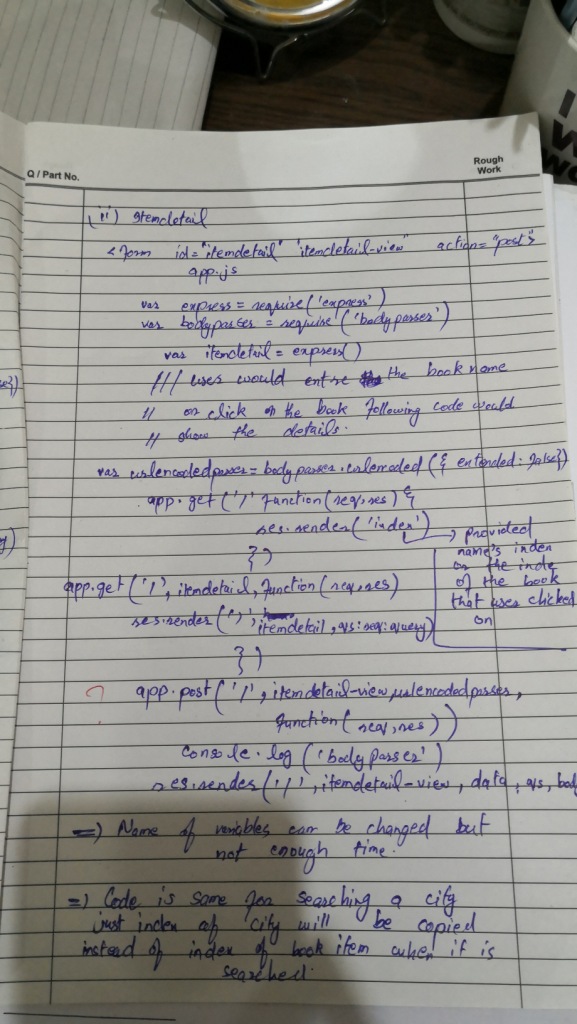 Q / Part No.
Rough
Work
(ii) Itemdetail
<Form id="itemdetail" "itemdetail-view" action="post">
app.js
var express = require('express')
var bodyparser = require('bodyparser')
var itemdetail = express()
/// user would entre the book name
// on click on the book following code would
// show the details.
var urlencodedparser = bodyparser.urlencoded({ extended: false})
app.get('/' function(req,res) {
res.render('index')
provided
name's index
or the index
of the book
that user clicked
on
})
app.get('/', itemdetail, function(req,res)
res.render('/', itemdetail, qs: req.query)
})
? app.post('/', itemdetail-view, urlencodedparser,
function(req,res))
console.log('bodyParser')
res.render('/', itemdetail-view, data, qs, bod
=) Name of variables can be changed but
not enough time.
=) Code is same for searching a city
just index of city will be copied
instead of index of book item when it is
searched.
I
W